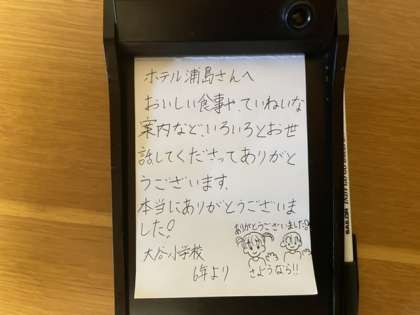 ホテル浦島さんへ
おいしい食事や、ていねいな
案内など、いろいろとお世
話してくださってありがと
うございます。
本当にありがとうございま
した!
大谷小学校
6年より
ありがとうございました!
さようなら!!